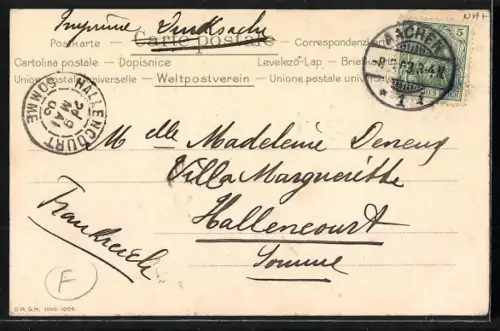 Imprimé Drucksache
Postkarte — Carte postale — Correspondenz
Cartolina postale – Dopisnice Levelező-Lap – Briefk
Union postale universelle – Weltpostverein – Unione postale univers
AACHEN
5
HALLENCOURT
SOMME
9
MAI
03
Mlle Madeleine Deneux
Villa Marguerithe
Hallencourt
Somme
Frankreich
F
D.R.G.M.